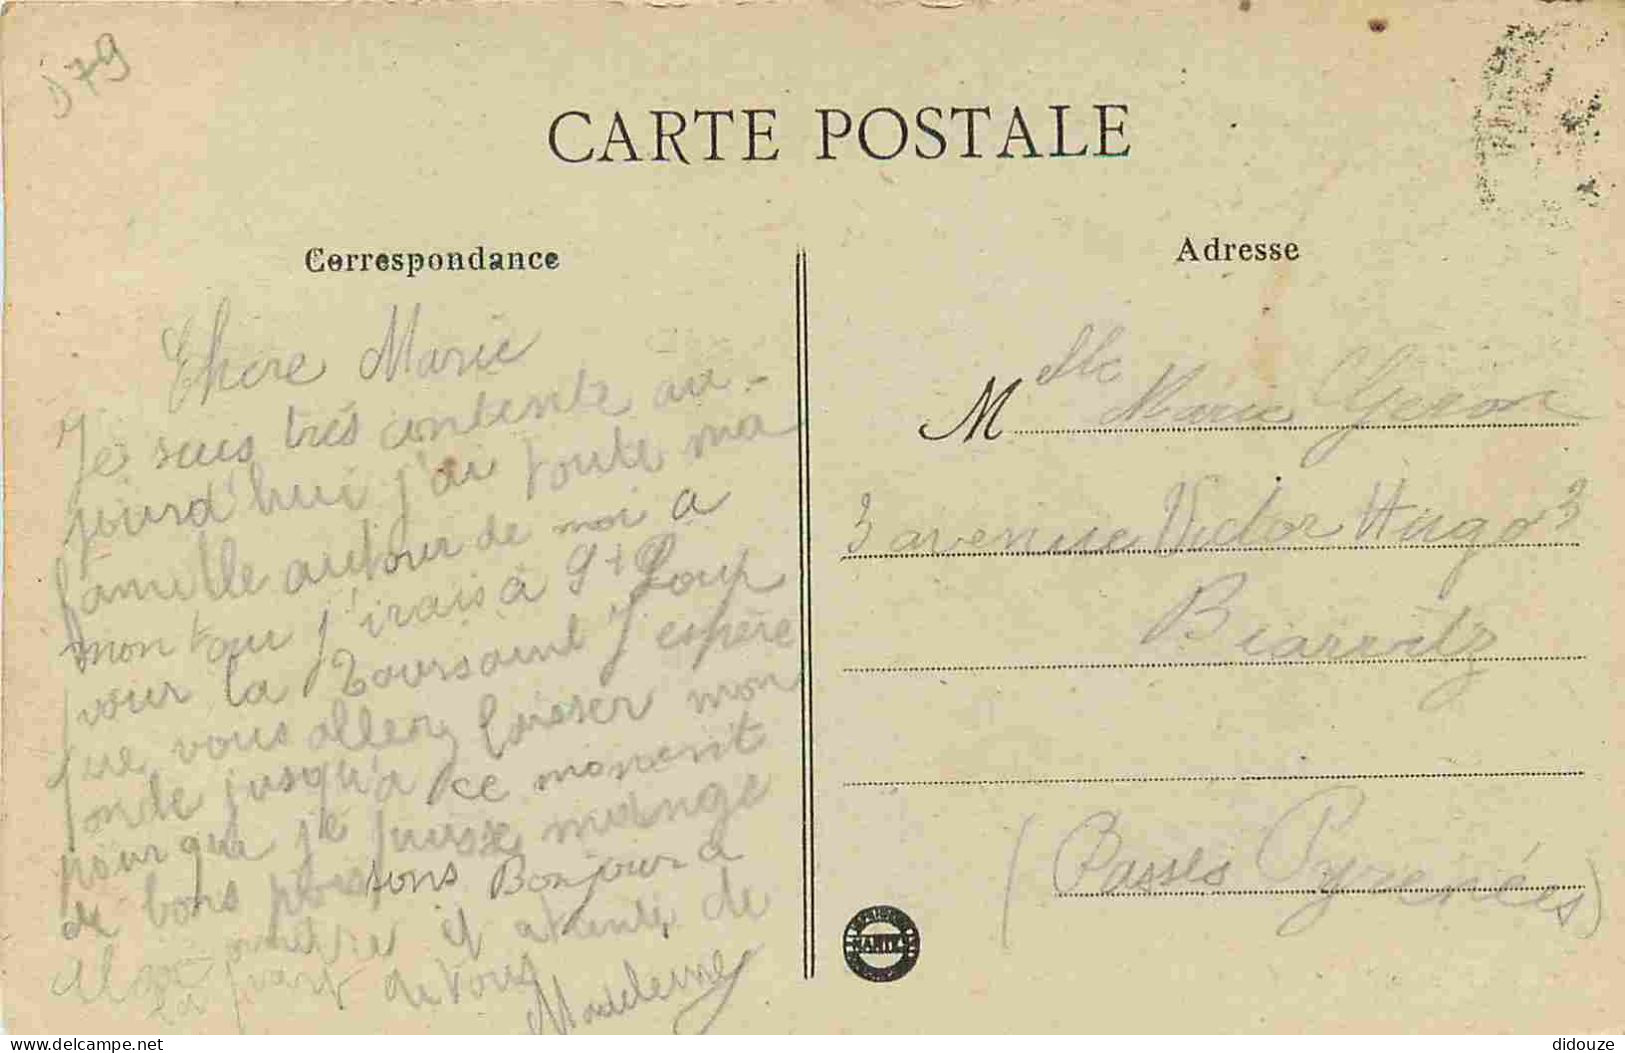 D79
CARTE POSTALE
Correspondance
Chère Marie
Je suis très contente au-
jourd'hui j'ai toute ma
famille autour de moi a
mon tour j'irais à St Loup
pour la Toussaint J'espère
que vous allez laisser mon
jusqu'a ce moment
pour que je puisse mange
de bons poissons Bonjour a
et de
la part de vous
Madeleine
Adresse
Mlle Marie Geron
3 avenue Victor Hugo 3
Biarritz
(Basses Pyrenées)
NANTES
delcampe.net
didouze